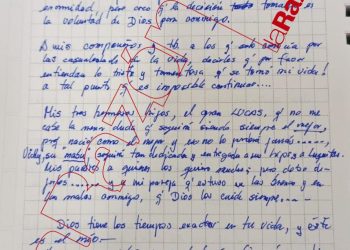 enormidad, pero creo q la decisión tomada es
la voluntad de Dios por conmigo.
A mis compañeros y tb. a los q son socios por
las casualidades de la vida, decirles q por favor
entiendan lo triste y tormentosa q se tornó mi vida!
a tal punto q es imposible continuar....
Mis tres hermosos hijos, el gran LUCAS, q no me
cabe la menor duda q seguirá siendo siempre el mejor,
pq' nació como el mejor y eso no lo perderá jamás.....,
Vicky, su mamá seguirá tan dedicada y entregada a sus
Mis padres a quienes los quiero mucho, pero dejo
y a mi pareja q' estuvo en las buenas y en
las malas conmigo, q' Dios los cuide siempre...-
Dios tiene los tiempos exactos en tu vida, y éste
es el mío-